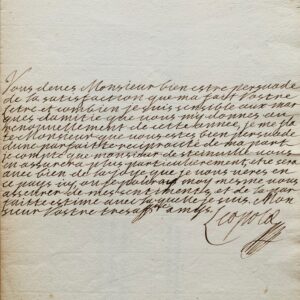 Vous deves Monsieur bien estre persuadé
de la satisfaction que ma fait vostre
lettre et combien je suis sensible aux mar
ques damitie que vous my donnes au
renouuellement de cette année, je me
Monsieur que vous estes bien persuadé
dune parfaitte reciprocité de ma part
je compte que monsieur de vous
en assurera plus particulierement, et ce
avec bien de la joye que je vous verés en
ce pays icy, ou je moy mesme vous
asseurer de mes sentiments, et de la par
faitte estime avec laquelle je suis. Mon
sieur Vostre tres affné amis
Leopold